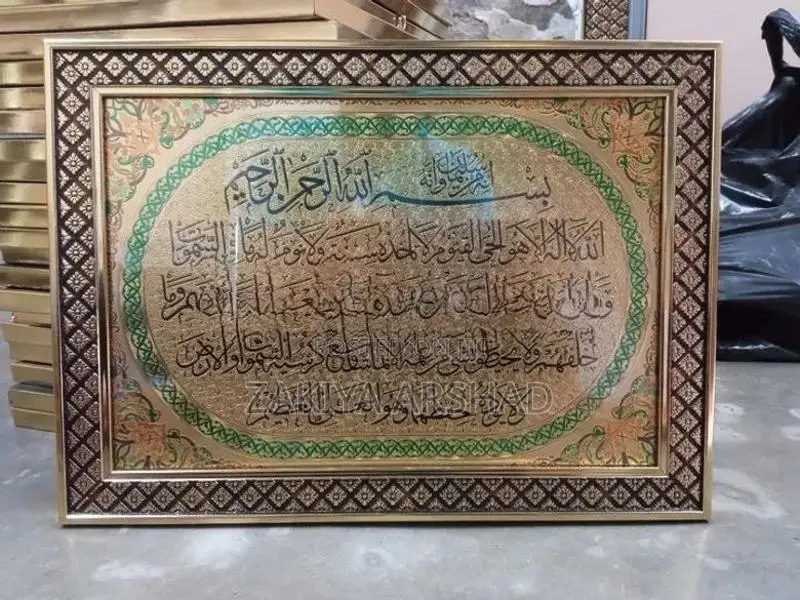 إنه من سليمان وإنه
بسم الله الرحمن الرحيم
الله لا إله إلا هو الحي القيوم لا تأخذه سنة ولا نوم له ما في السموات
وما في أيديهم وما
خلفهم ولا يحيطون بشيء من علمه إلا بما شاء وسع كرسيه السموات والأرض
ولا يؤده حفظهما وهو العلي العظيم
ZAKIYA ARSHAD